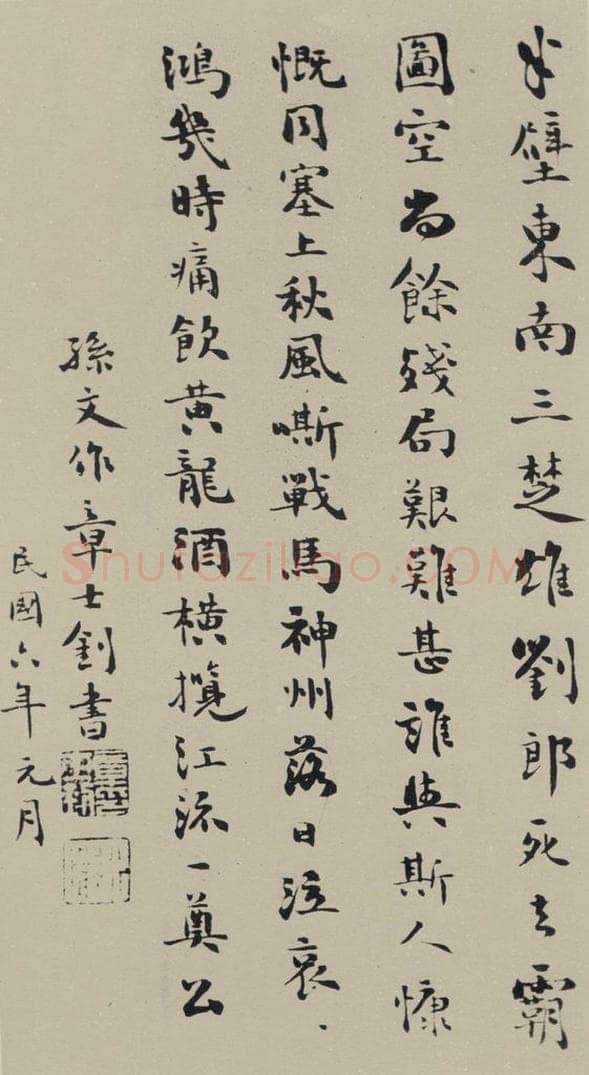 半壁東南三楚雄劉郎死去霸
圖空尚餘殘局艱難甚誰與斯人慷
慨同塞上秋風嘶戰馬神州落日泣哀、
鴻幾時痛飲黃龍酒橫攬江流一奠公
孫文作章士釗書
民國六年元月
Shufaziliao.COM